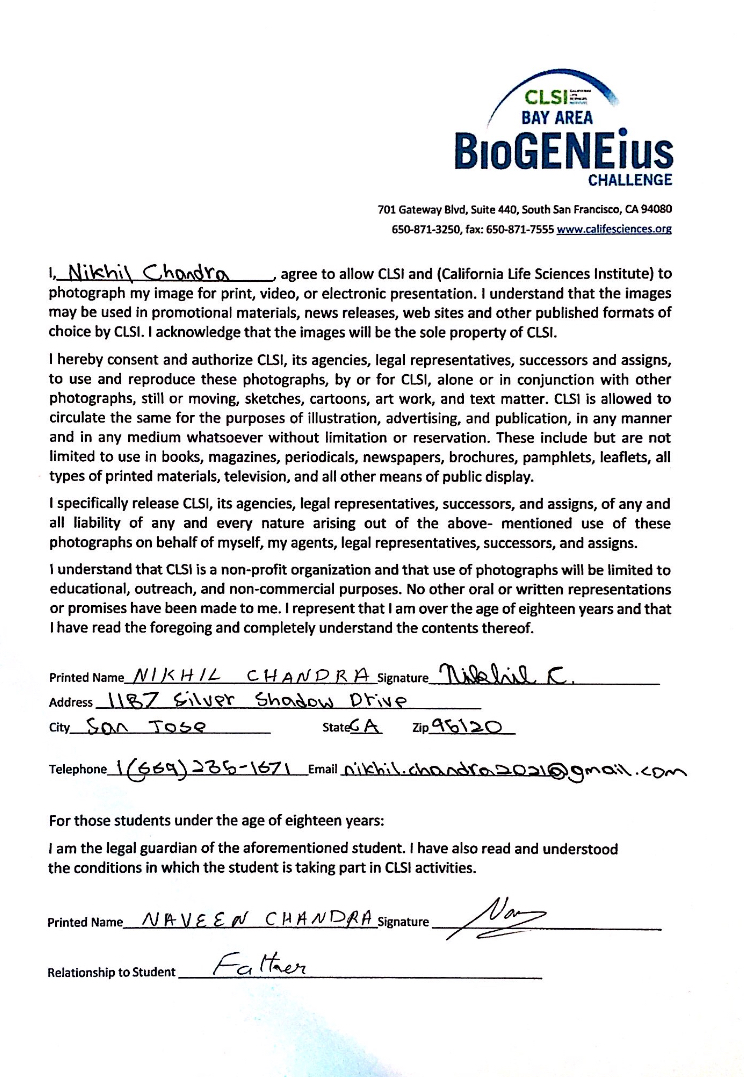 CLSI CALIFORNIA LIFE SCIENCES INSTITUTE
BAY AREA
BioGENEius
CHALLENGE
701 Gateway Blvd, Suite 440, South San Francisco, CA 94080
650-871-3250, fax: 650-871-7555 www.califesciences.org
I, Nikhil Chandra, agree to allow CLSI and (California Life Sciences Institute) to
photograph my image for print, video, or electronic presentation. I understand that the images
may be used in promotional materials, news releases, web sites and other published formats of
choice by CLSI. I acknowledge that the images will be the sole property of CLSI.
I hereby consent and authorize CLSI, its agencies, legal representatives, successors and assigns,
to use and reproduce these photographs, by or for CLSI, alone or in conjunction with other
photographs, still or moving, sketches, cartoons, art work, and text matter. CLSI is allowed to
circulate the same for the purposes of illustration, advertising, and publication, in any manner
and in any medium whatsoever without limitation or reservation. These include but are not
limited to use in books, magazines, periodicals, newspapers, brochures, pamphlets, leaflets, all
types of printed materials, television, and all other means of public display.
I specifically release CLSI, its agencies, legal representatives, successors, and assigns, of any and
all liability of any and every nature arising out of the above- mentioned use of these
photographs on behalf of myself, my agents, legal representatives, successors, and assigns.
I understand that CLSI is a non-profit organization and that use of photographs will be limited to
educational, outreach, and non-commercial purposes. No other oral or written representations
or promises have been made to me. I represent that I am over the age of eighteen years and that
I have read the foregoing and completely understand the contents thereof.
Printed Name NIKHIL CHANDRA Signature Nikhil C.
Address 1187 Silver Shadow Drive
City San Jose State CA Zip 95120
Telephone 1(669)235-1671 Email nikhil.chandra2021@gmail.com
For those students under the age of eighteen years:
I am the legal guardian of the aforementioned student. I have also read and understood
the conditions in which the student is taking part in CLSI activities.
Printed Name NAVEEN CHANDRA Signature
Relationship to Student Father